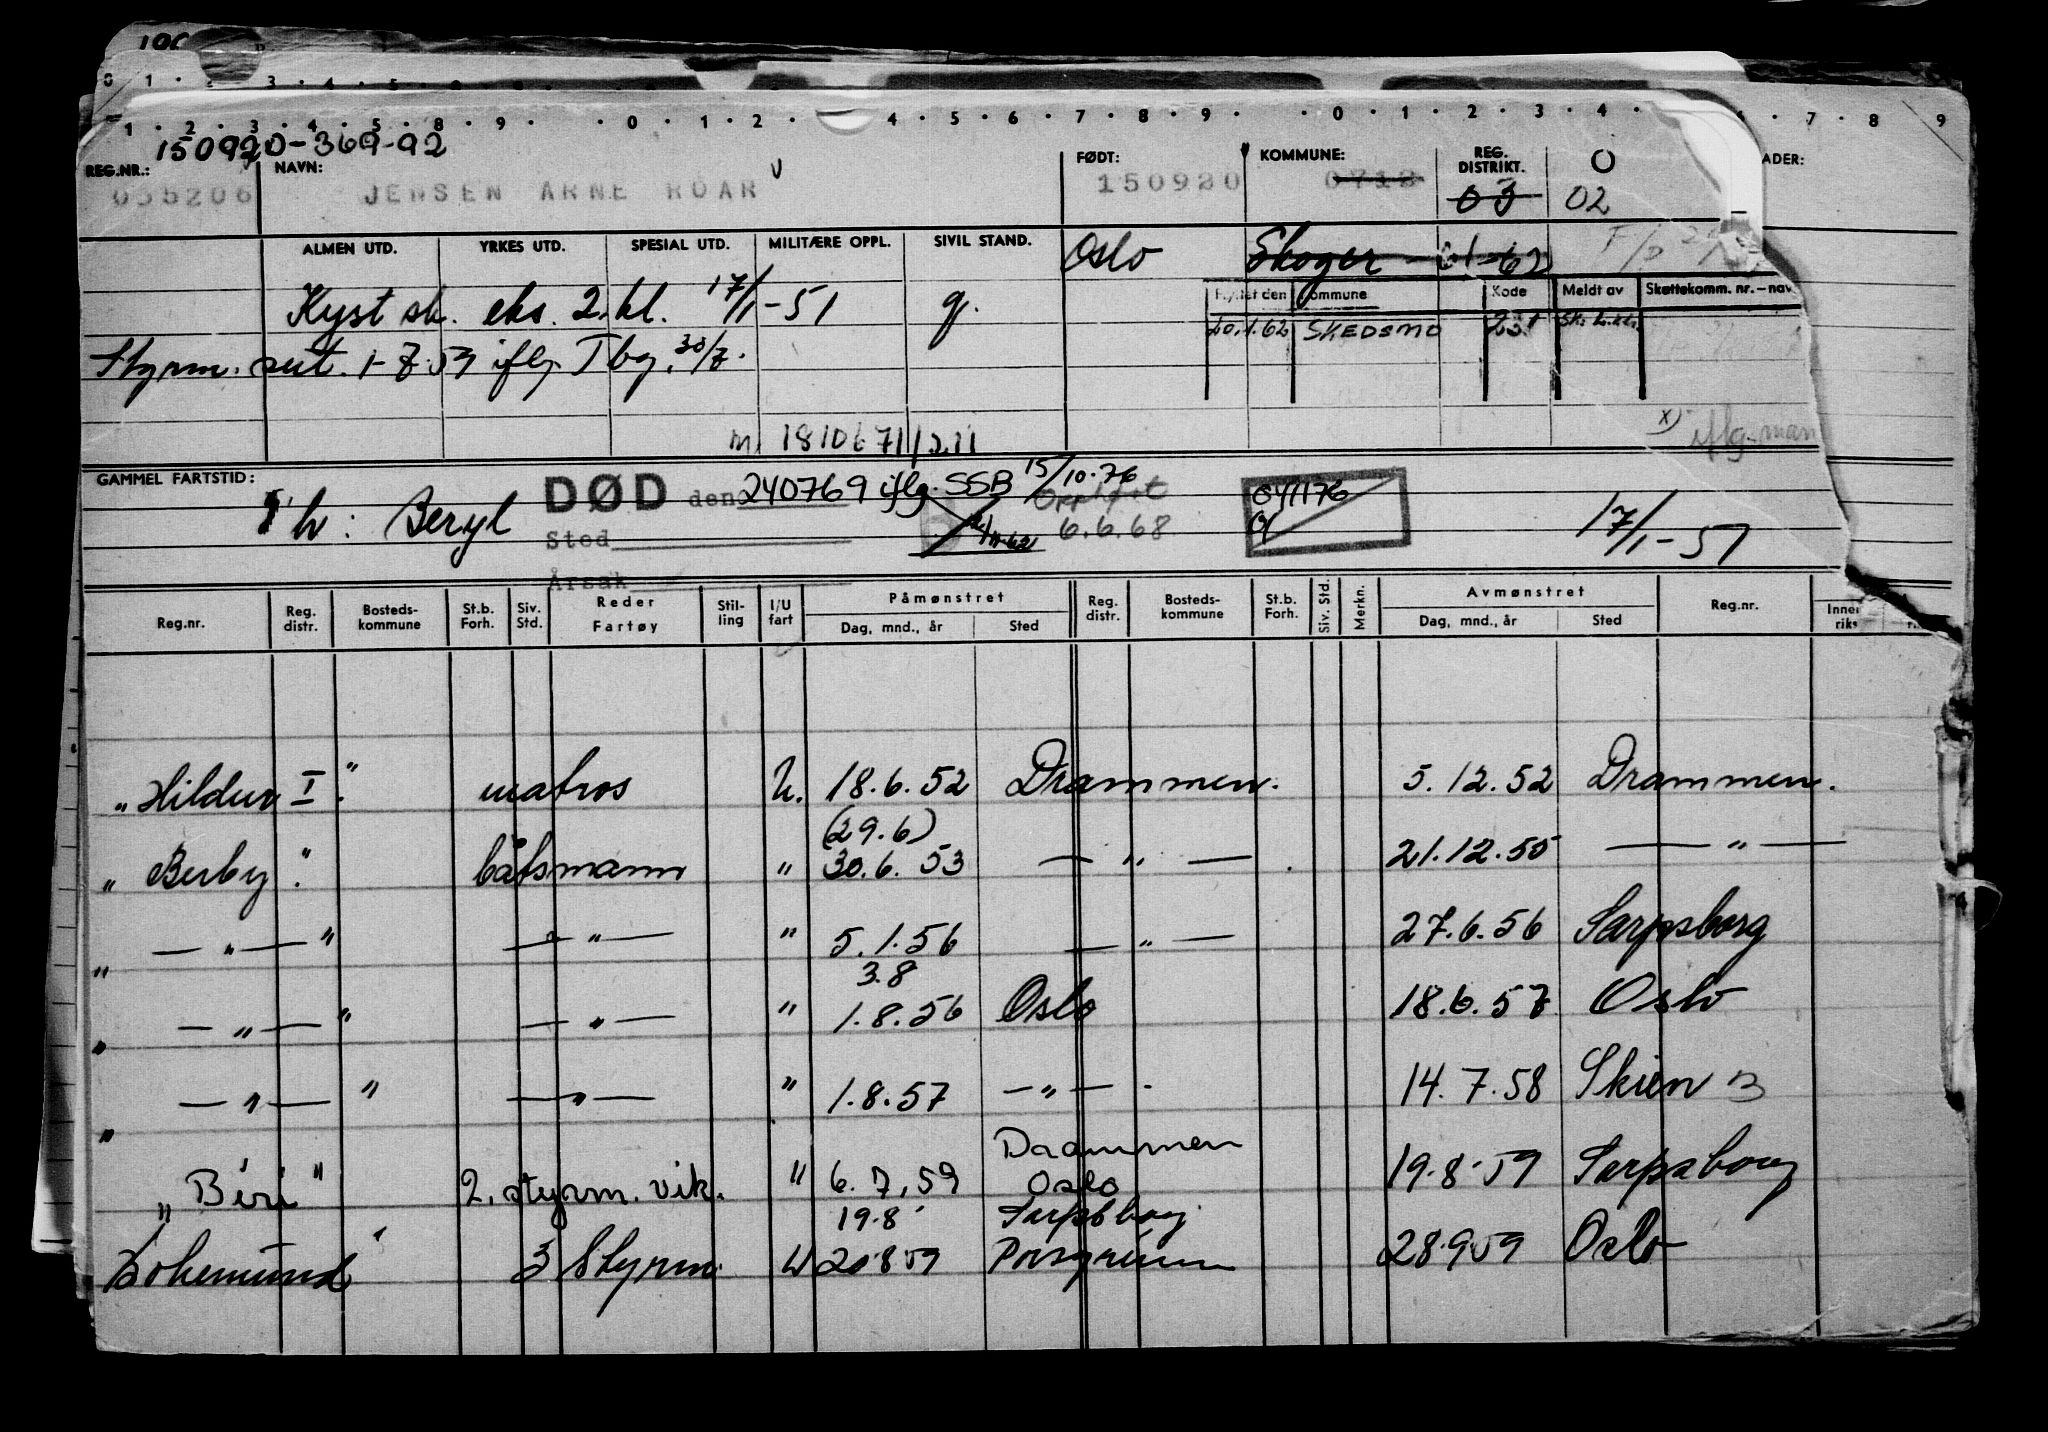 0 1 · 3 · 4 · 5
1 · 2 · 3 · 4 · 5 · 8 · 9 · · 0 · 1 · 2 · 4 · 5 · 6 · 7 · 8 · 9 · · 0 · 1 · 2 · 3 · 4 · 7 · 8 9
150920-369-92
REG.NR.: NAVN: FØDT: KOMMUNE: REG. DISTRIKT. O ADER:
055206 JENSEN ARNE ROAR 150920 0712 03 02
ALMEN UTD. YRKES UTD. SPESIAL UTD. MILITÆRE OPPL. SIVIL STAND. Oslo Skoger -62
Kyst sk. eks. 2. kl. 17/1-51 g.
Flyttet den Kommune Kode Meldt av Skattekomm. nr. - nav
20.1.62 SKEDSMO 231
Styrm. sert. 1-7.59 iflg. Tbg. 30/7.
x) iflg. man
GAMMEL FARTSTID: DØD den 240769 iflg. SSB 15/10-76
h: Beryl 6.6.68 041176 17/1-51
Sted
Årsak
Reg.nr. Reg. distr. Bosteds-kommune St.b. Forh. Siv. Std. Reder Fartøy Stil-ling I/U fart Påmønstret Dag, mnd., år Sted Reg. distr. Bosteds-kommune St.b. Forh. Siv. Std. Merkn. Avmønstret Dag, mnd., år Sted Reg.nr. Inner riks
"Hildur I" matros U. 18.6.52 Drammen. 5.12.52 Drammen.
(29.6)
" Berby " båtsmann " 30.6.53 — " — 21.12.55 — " —
" — " — " — " — " 5.1.56 — " — 27.6.56 Sarpsborg
3.8
" — " — " — " — " 1.8.56 Oslo 18.6.57 Oslo
" — " — " — " — " 1.8.57 — " — 14.7.58 Skien
Drammen
" Biri " 2. styrm. vik. " 6.7.59 Oslo 19.8.59 Sarpsborg
19.8 Sarpsborg
Bohemund " 3 Styrm. U 20859 Porsgrunn 28.959 Oslo